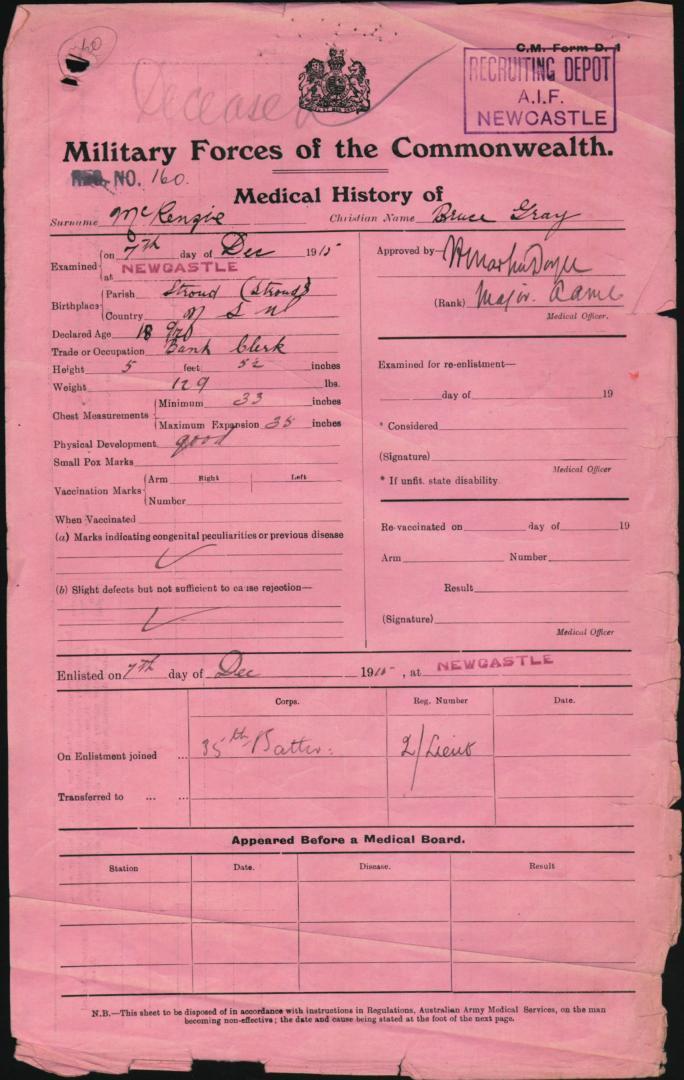 160
Deceased
C.M. Form D. 1
RECRUITING DEPOT
A.I.F.
NEWCASTLE
Military Forces of the Commonwealth.
REG. NO. 160.
Medical History of
Surname McKenzie Christian Name Bruce Gray
Examined on 7th day of Dec 1915
at NEWCASTLE
Birthplace Parish Stroud (Stroud)
Country N S W
Declared Age 18
Trade or Occupation Bank Clerk
Height 5 feet 5½ inches
Weight 129 lbs.
Chest Measurements Minimum 33 inches
Maximum Expansion 35 inches
Physical Development good
Small Pox Marks
Vaccination Marks Arm Right Left
Number
When Vaccinated
(a) Marks indicating congenital peculiarities or previous disease
(b) Slight defects but not sufficient to cause rejection—
Approved by
(Rank) Major. AAMC
Medical Officer.
Examined for re-enlistment—
day of 19
* Considered
(Signature)
Medical Officer
* If unfit. state disability
Re-vaccinated on day of 19
Arm Number
Result
(Signature)
Medical Officer
Enlisted on 7th day of Dec 1915, at NEWCASTLE
Corps. Reg. Number Date.
On Enlistment joined ... 35th Battn: 2/Lieut
Transferred to ... ...
Appeared Before a Medical Board.
Station Date. Disease. Result
N.B.—This sheet to be disposed of in accordance with instructions in Regulations, Australian Army Medical Services, on the man
becoming non-effective; the date and cause being stated at the foot of the next page.